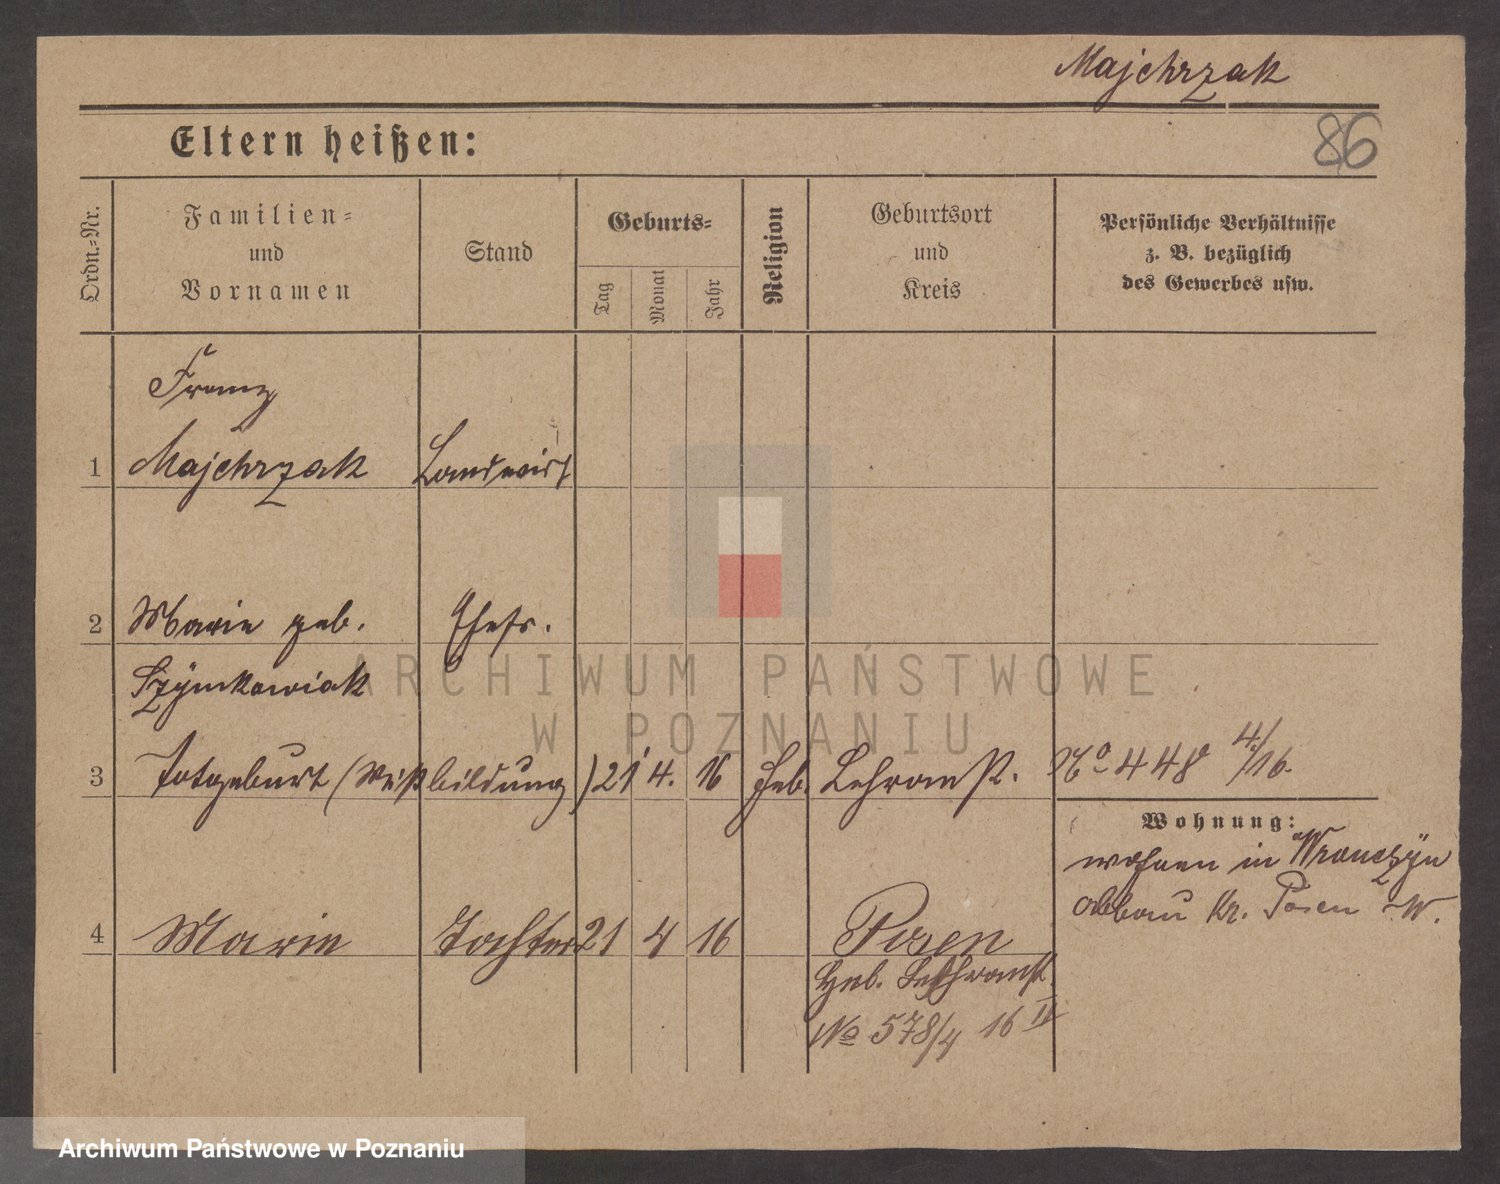 Majchrzak
86
Eltern heißen:
Ordn.-Nr.
Familien-
und
Vornamen
Stand
Geburts-
Tag
Monat
Jahr
Religion
Geburtsort
und
Kreis
Persönliche Verhältnisse
z. B. bezüglich
des Gewerbes usw.
Franz
1 Majchrzak Landwirt
2 Marie geb. Ehefr.
Szymkowiak
3 Totgeburt (Mißbildung) 21 4. 16 Heb. Lehranst. No 448 4/16.
Wohnung:
wohnen in Wronczyn
abbau Kr. Posen W.
4 Marie Tochter 21 4 16 Posen
Heb. Lehranst.
No 578/4 16 II
ARCHIWUM PAŃSTWOWE
W POZNANIU
Archiwum Państwowe w Poznaniu